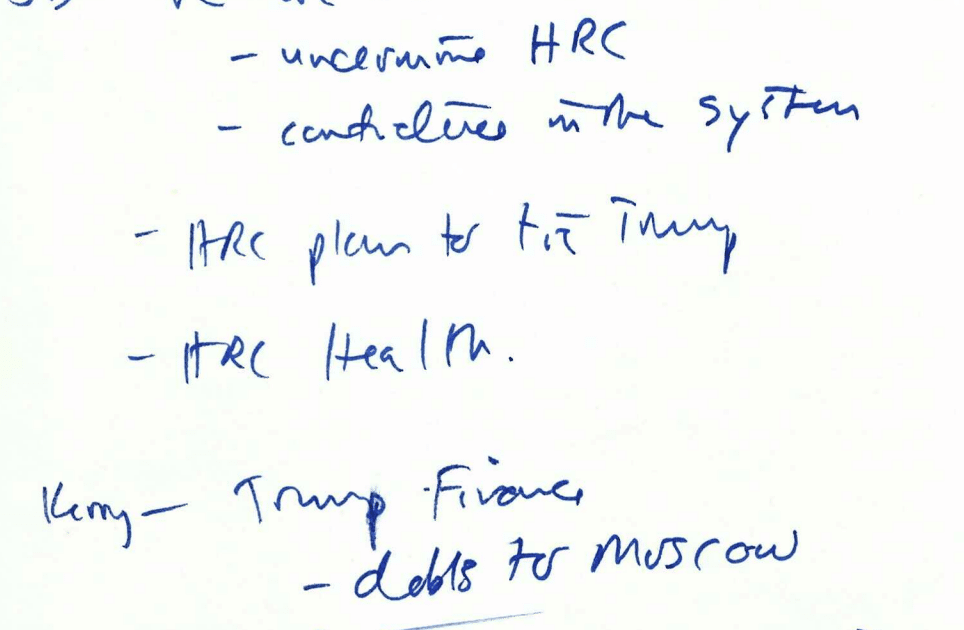 - undermine HRC
- candidates in the system
- HRC plan to tie Trump
- HRC Health.
Kerry - Trump Finance
- debts to Moscow